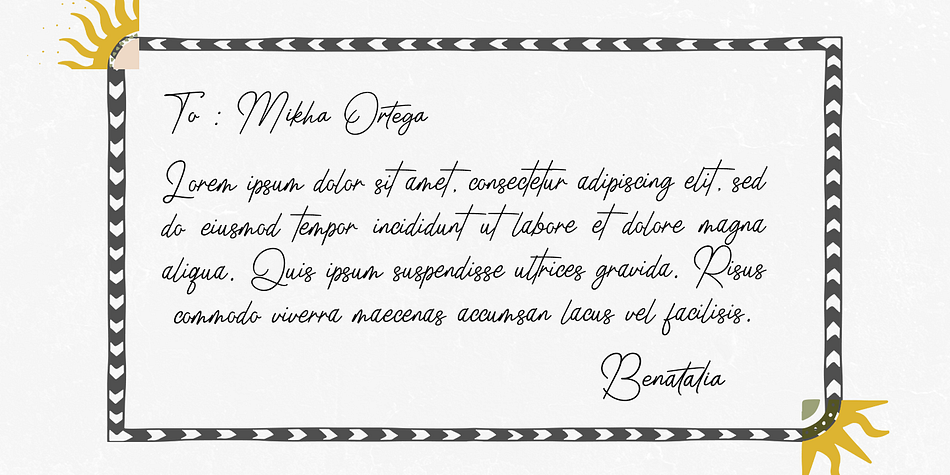 To : Mikha Ortega
Lorem ipsum dolor sit amet, consectetur adipiscing elit, sed
do eiusmod tempor incididunt ut labore et dolore magna
aliqua. Quis ipsum suspendisse ultrices gravida. Risus
commodo viverra maecenas accumsan lacus vel facilisis.
Benatalia